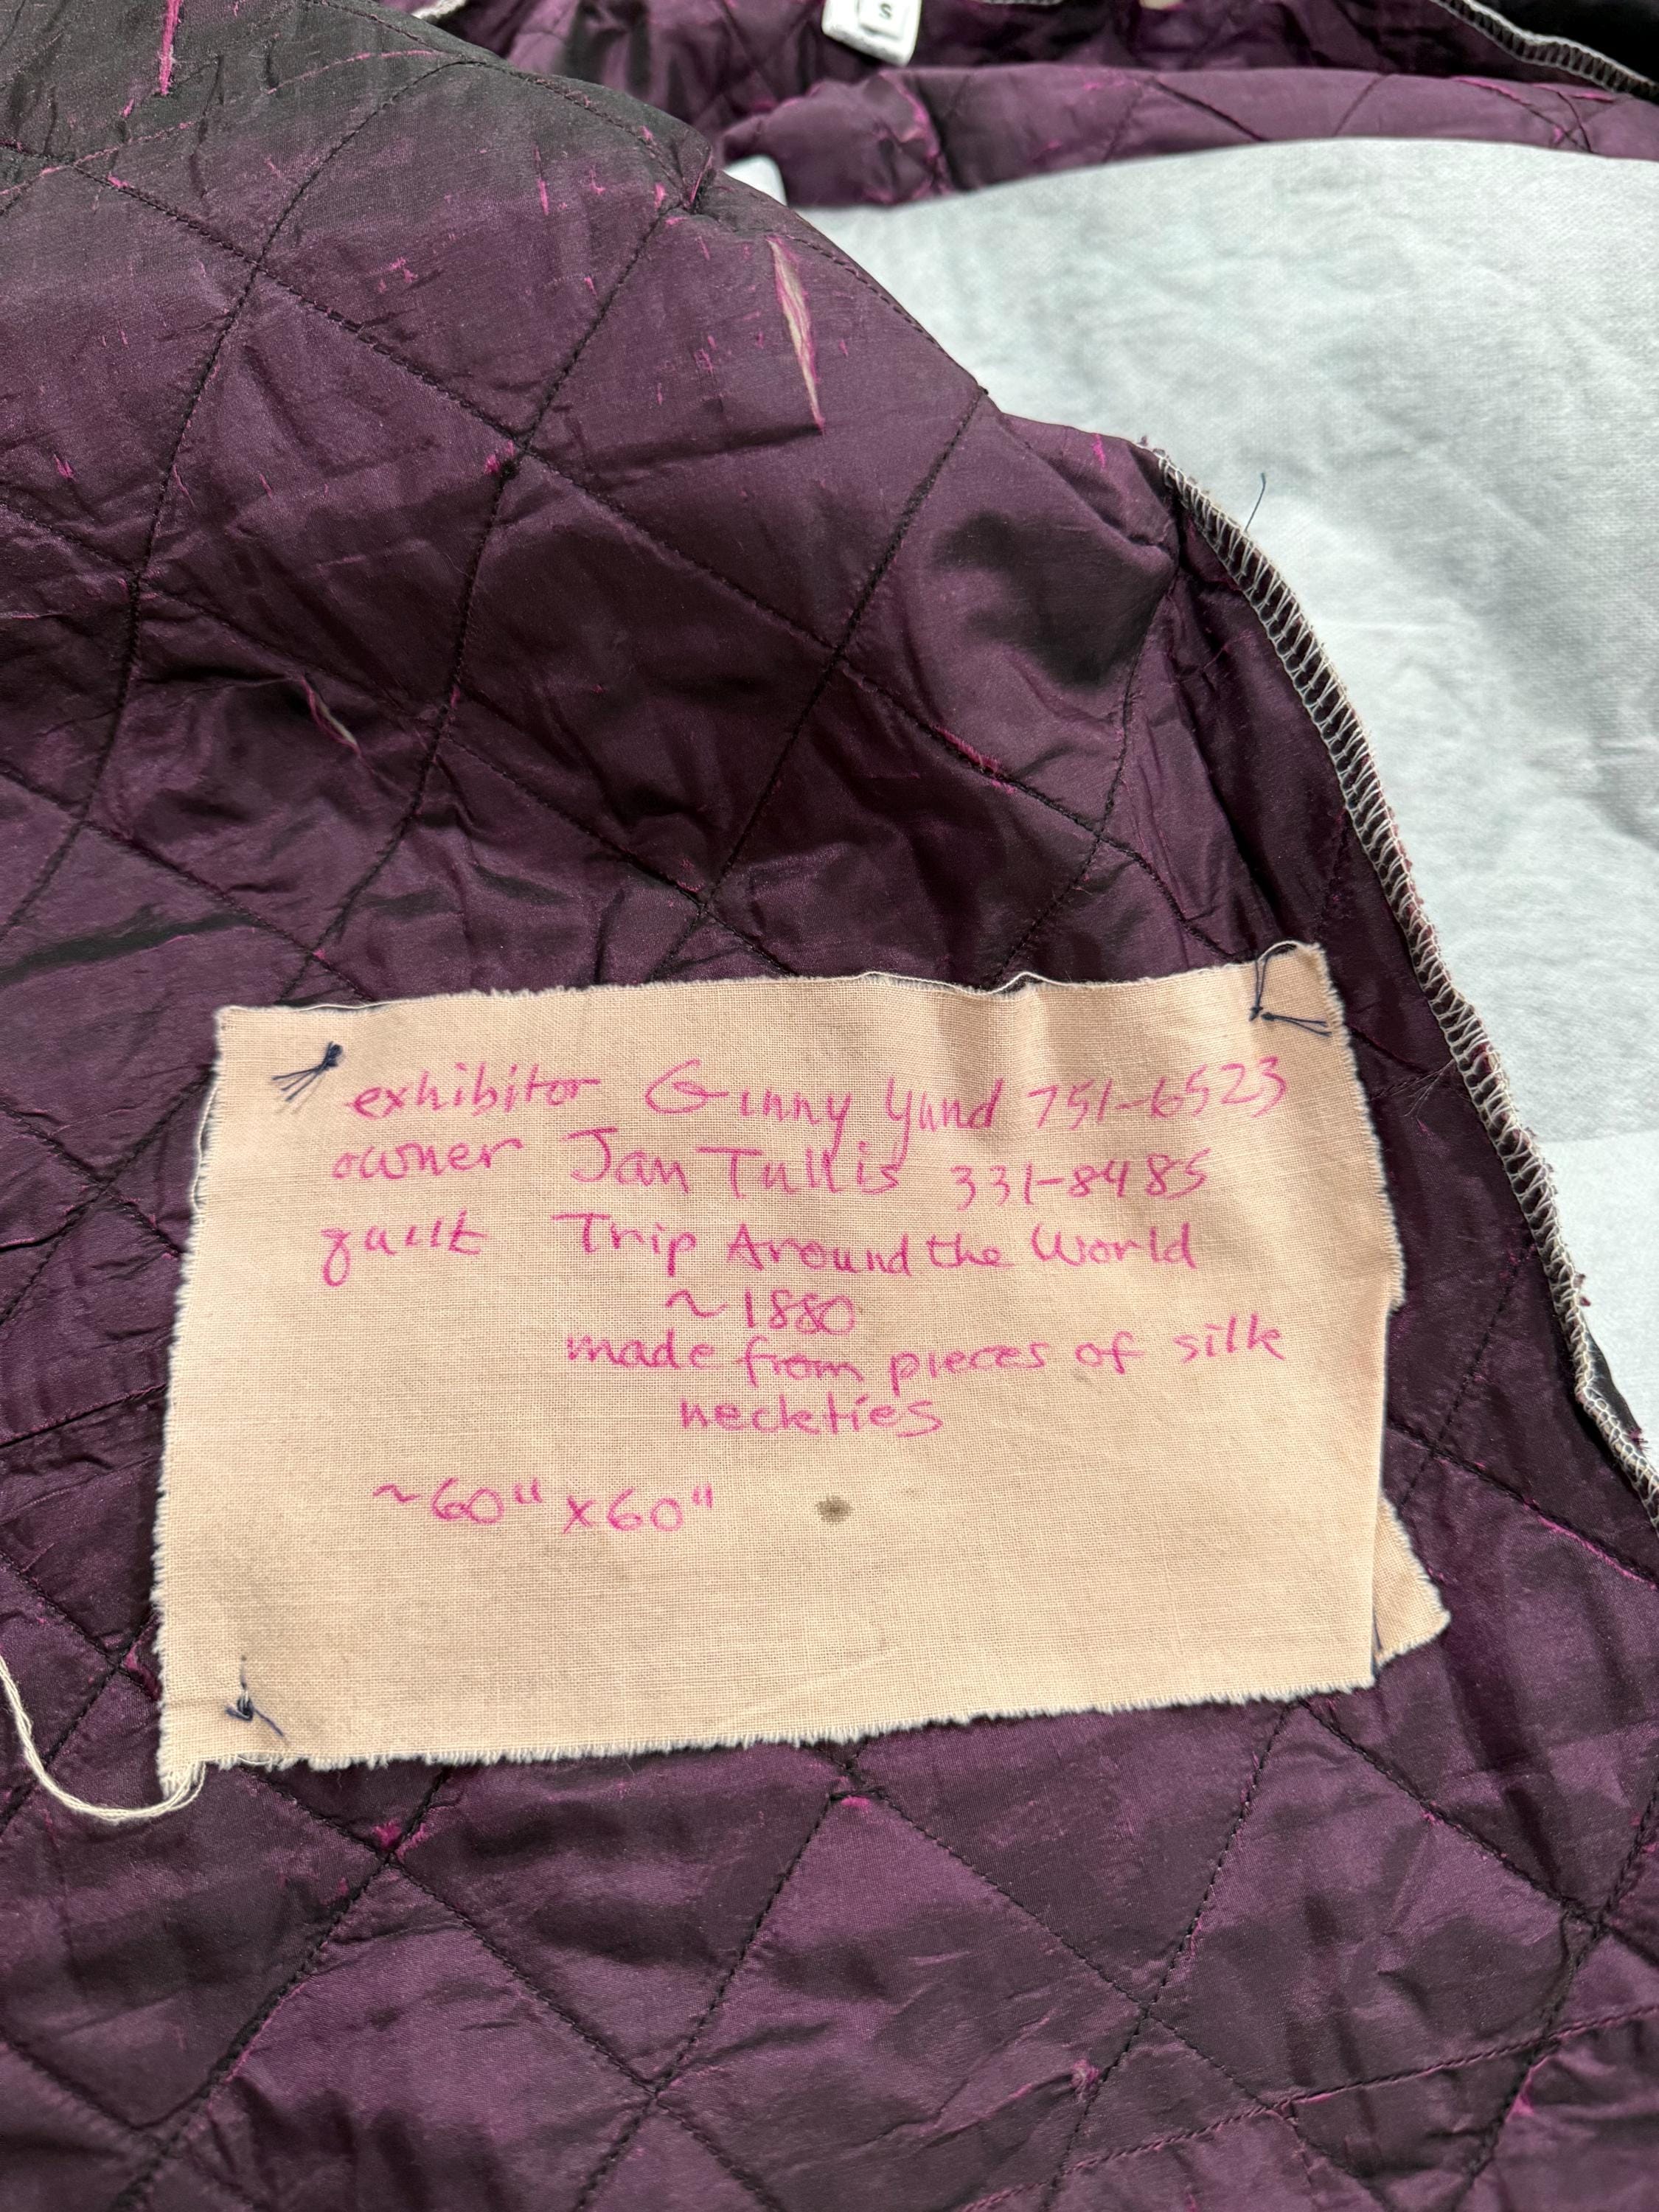 S
exhibitor Ginny Yund 751-6523
owner Jan Tullis 331-8485
quilt Trip Around the World
~1880
made from pieces of silk
neckties
~60" x 60"